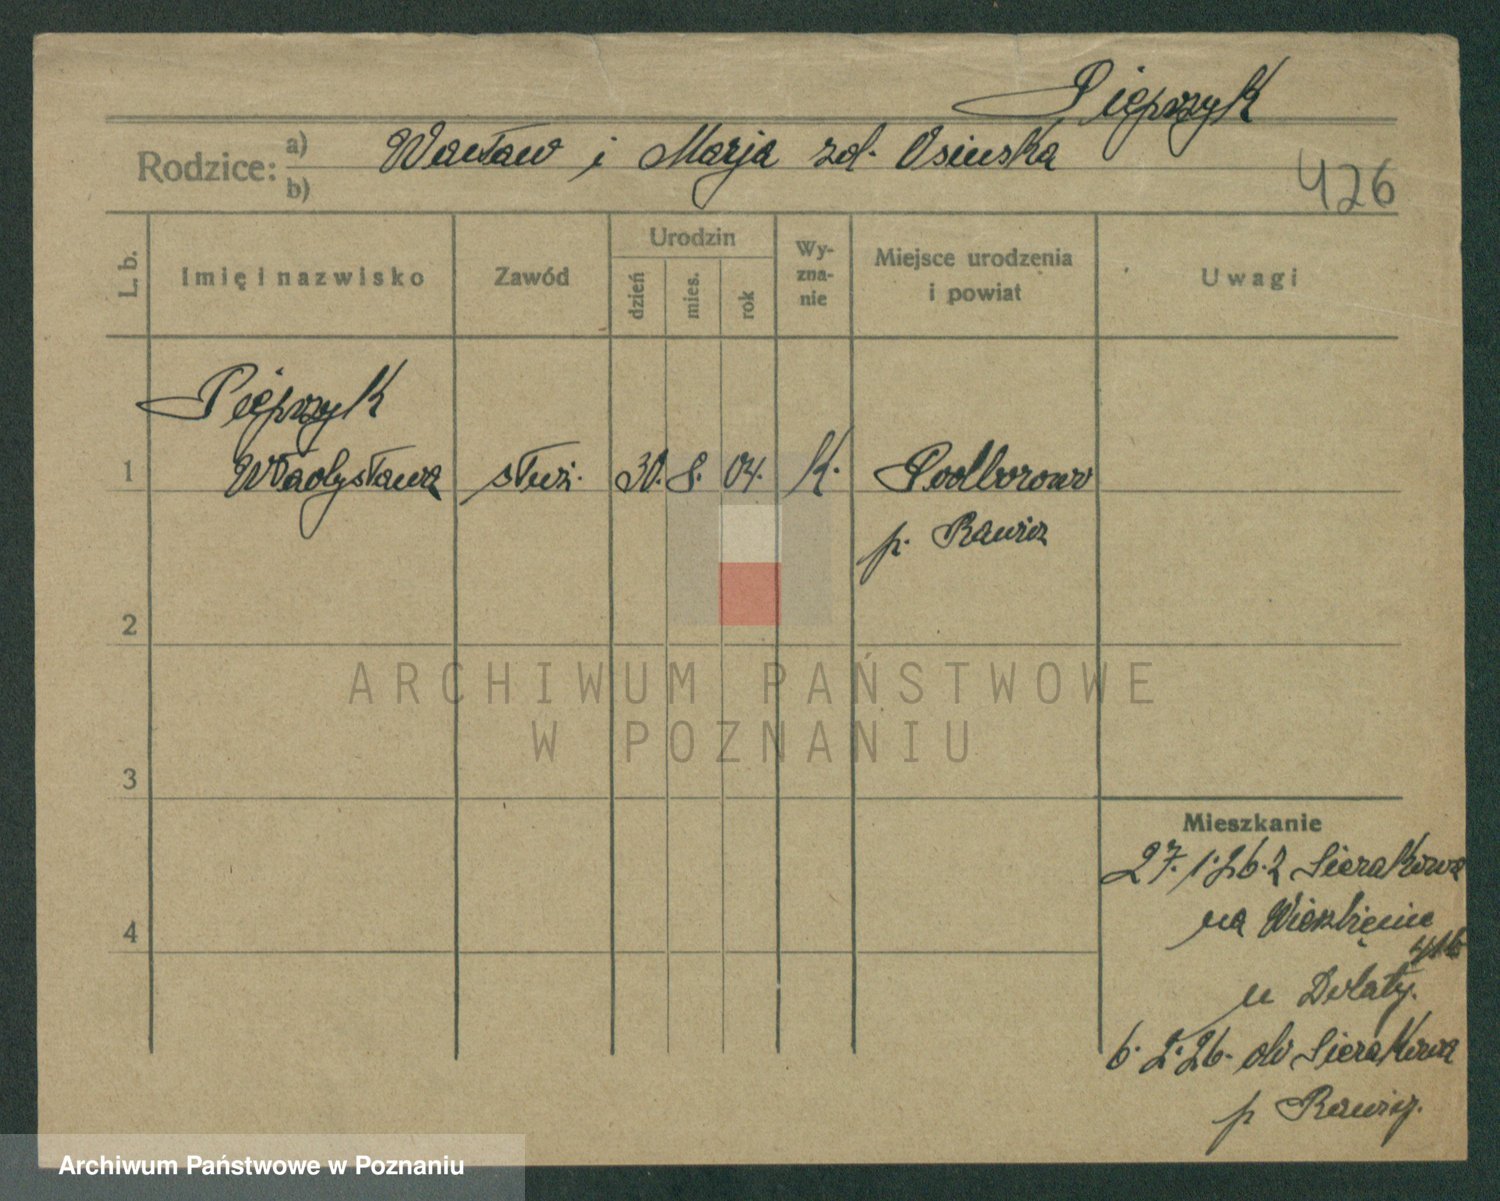 Pieprzyk
Rodzice: a) Wacław i Marja zd. Osinska
b)
426
L. b.
Imię i nazwisko
Zawód
Urodzin
dzień
mies.
rok
Wy-
zna-
nie
Miejsce urodzenia
i powiat
Uwagi
Pieprzyk
1 Władysława służ. 30. 8. 04. K. Podborowo
p. Rawicz
2
ARCHIWUM PAŃSTWOWE
W POZNANIU
3
Mieszkanie
27. 1. 26. z Sierakowa
na Wierzbięcice
4
u
6. 2. 26. do Sierakowa
p Rawicz.
Archiwum Państwowe w Poznaniu